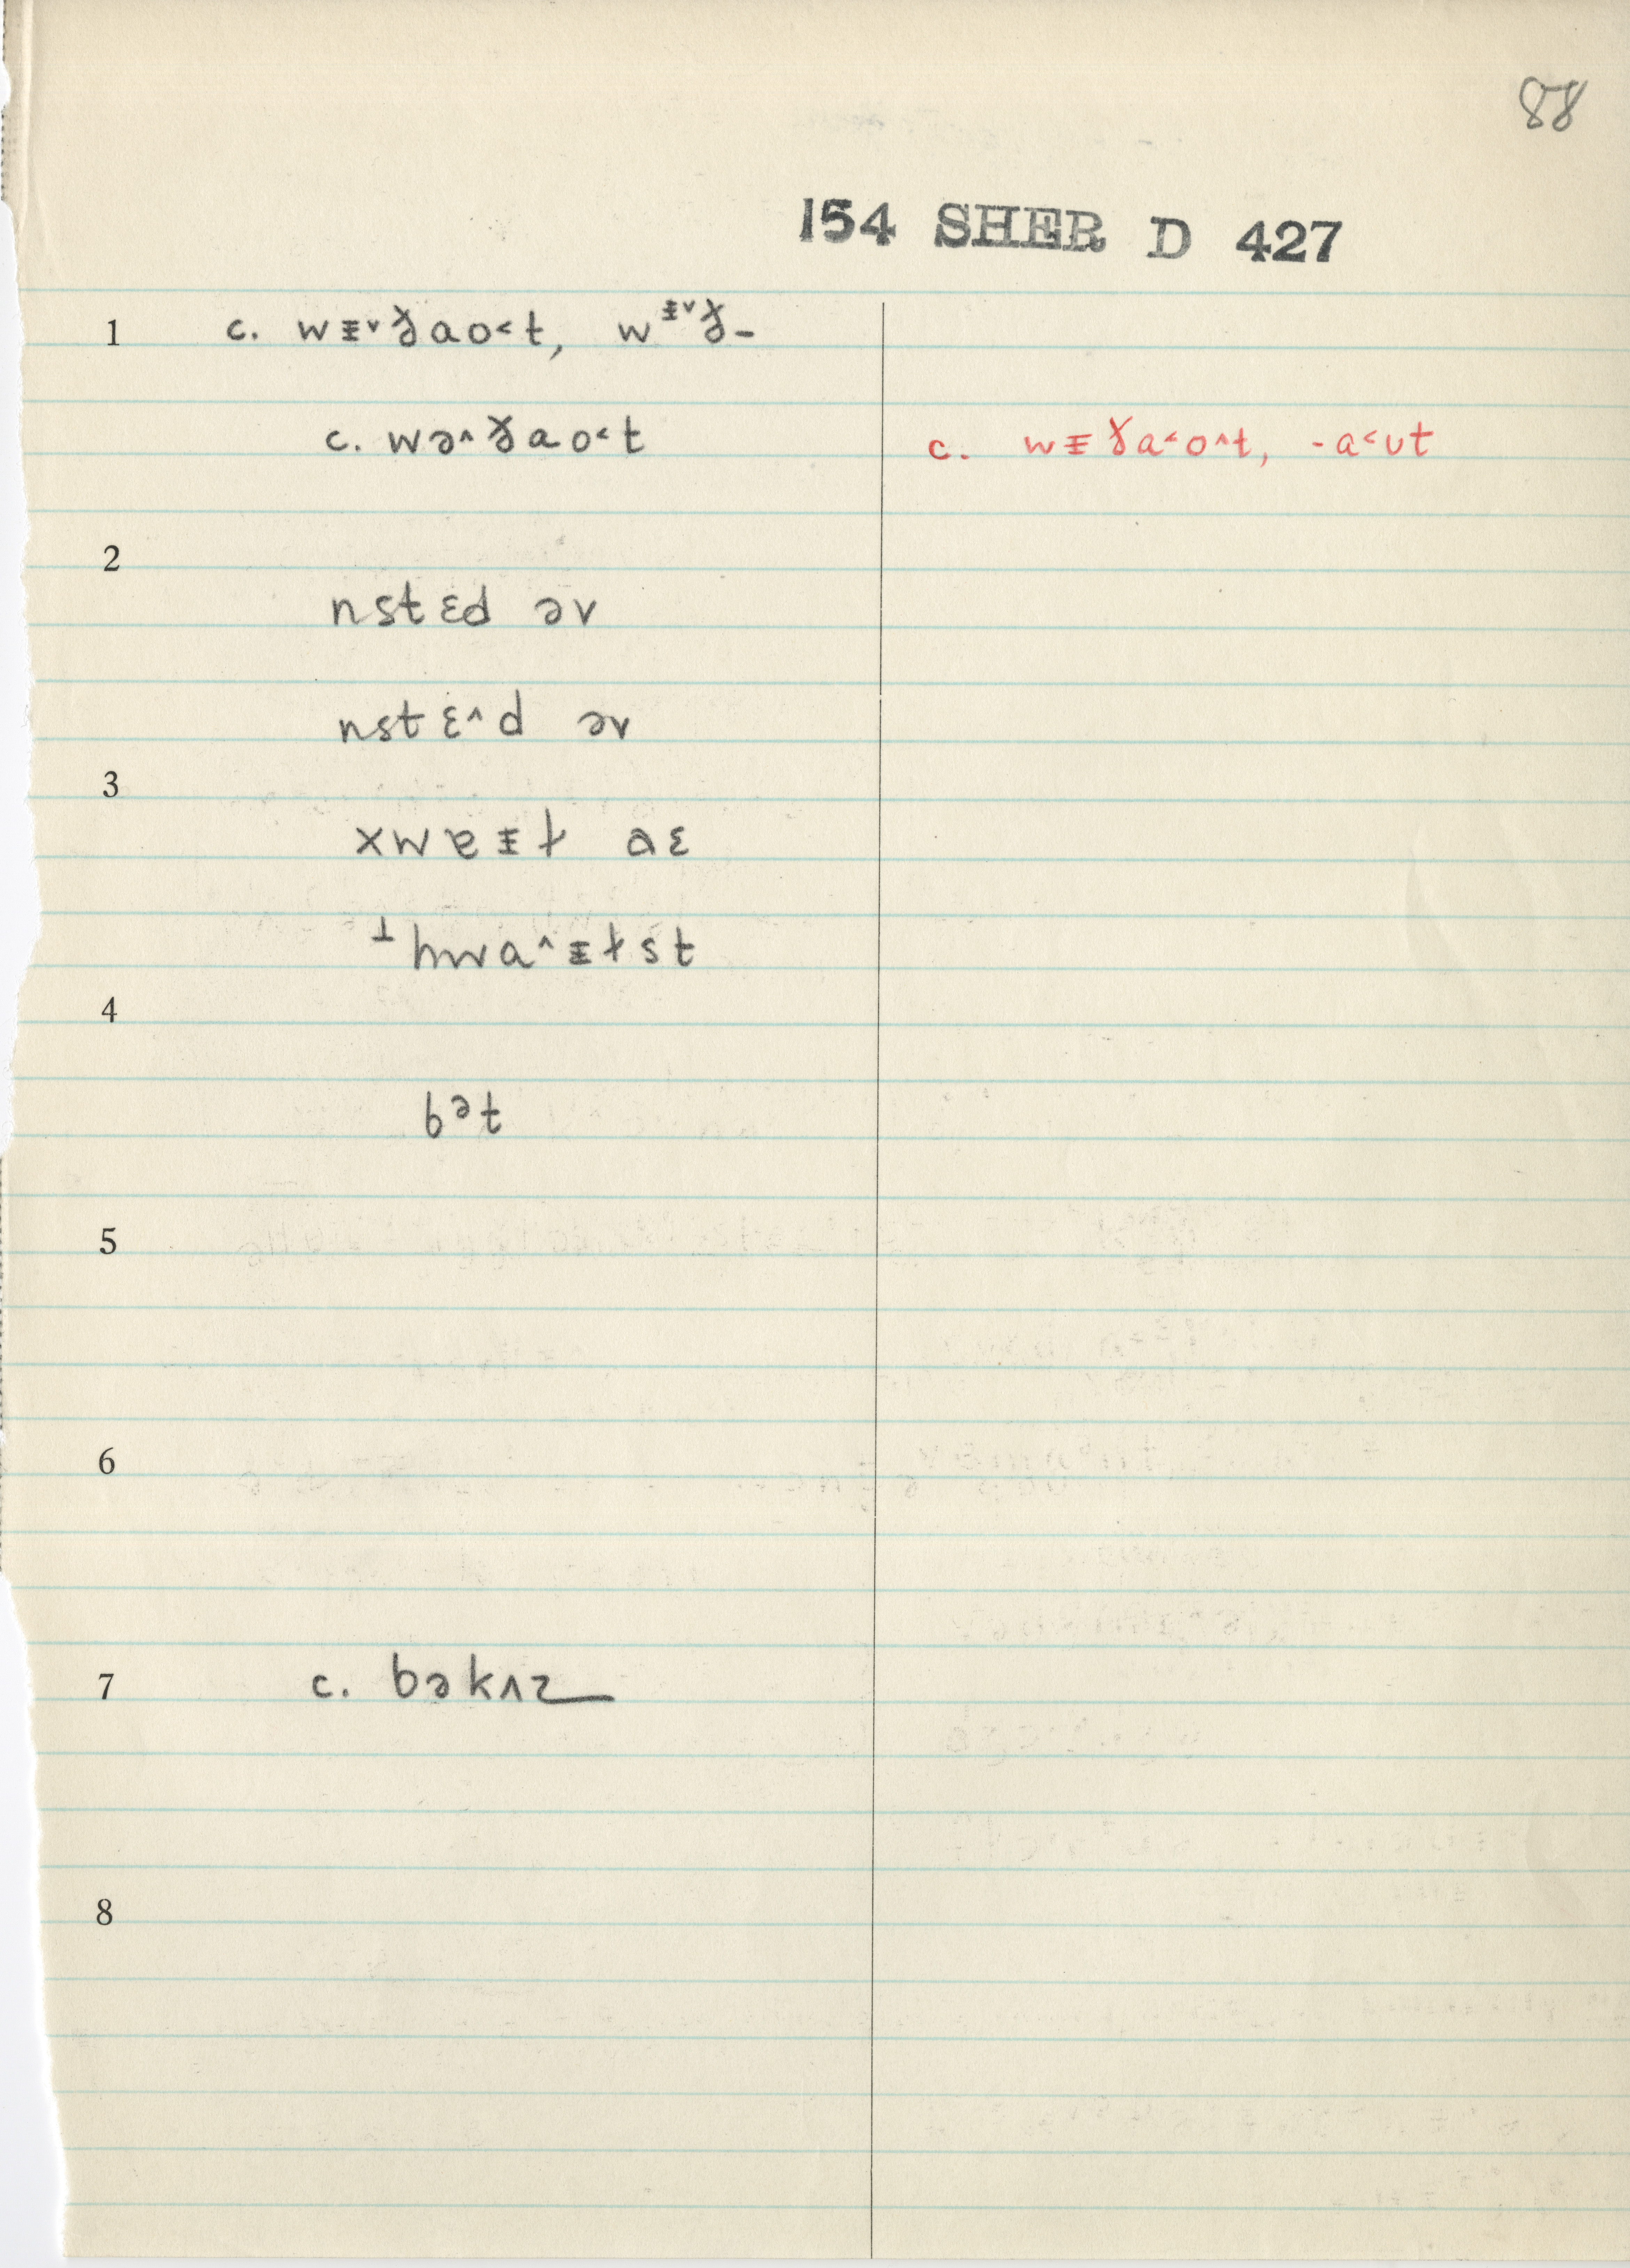 88
154 SHER D 427
1 c. wᵻ˅ɣao˂t, wᵻ˅ɣ-
c. wə˄ɣao˂t c. wᵻɣa˂o˄t, -a˂ʊt
2
nstɛd əv
nstɛ˄d əv
3
xwɐᵻɫ ɑɛ
┴hwɑ˄ᵻɫst
4
bət
5
6
7 c. bəkʌz
8